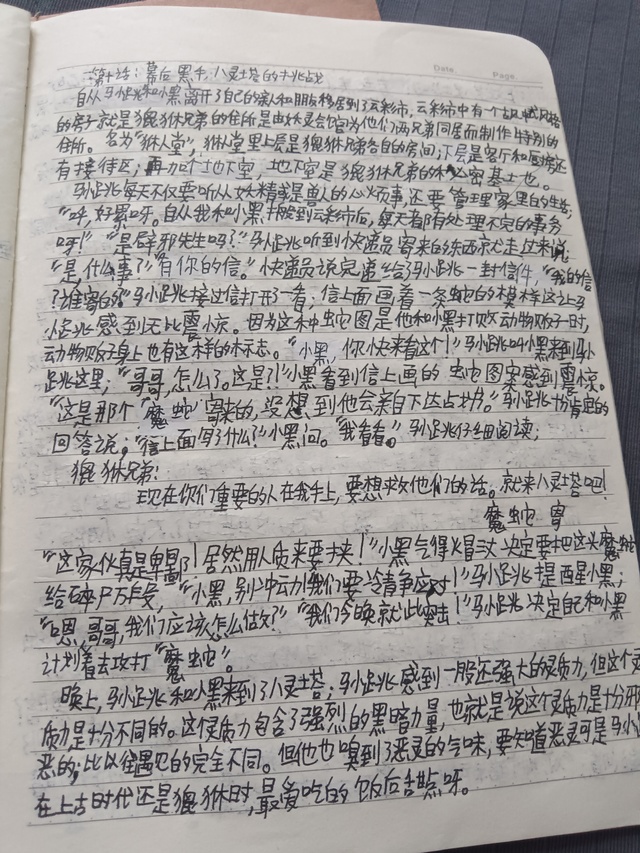 第十话：幕后黑手，八灵塔的挑战
Date. Page.
自从马小跳和小黑离开了自己的亲人和朋友移居到了云彩市，云彩市中有一个古风格
的房子就是貔貅兄弟的住所是由妖灵会馆为他们两兄弟同居而制作特别的
住所。名为“貅人堂”，貅人堂里上层是貔貅兄弟各自的房间；下层是客厅和厨房还
有接待区；再加个地下室，地下室是貔貅兄弟的秘密基地。
马小跳每天不仅要听从妖精或是兽人的心烦事，还要管理家里的生意；
“呼，好累呀。自从我和小黑搬到云彩市后，每天都有处理不完的事务
呀！”“是辟邪先生吗？”马小跳听到快递员寄来的东西就走过来说
“是，什么事？”“有你的信。”快递员说完递给马小跳一封信件，“我的信
？谁寄的？”马小跳接过信打开了一看；信上面画着一条蛇的模样这让马
小跳感到无比震惊。因为这种蛇图是他和小黑打败动物贩子时，
动物贩子身上也有这样的标志。“小黑，你快来看这个！”马小跳叫小黑来到马小
跳这里；“哥哥，怎么了。这是？！”小黑看到信上画的蛇图案感到震惊。
“这是那个“魔蛇”寄来的，没想到他会亲自下达占书。”马小跳十分肯定的
回答说；“信上面写了什么？”小黑问。“我看看。”马小跳仔细阅读；
貔貅兄弟：
现在你们重要的人在我手上，要想求救他们的话。就来八灵塔吧！
魔蛇 曾
“这家伙真是卑鄙了！居然用人质来要挟！”小黑气得火冒三丈决定要把这头魔蛇
给碎尸万段，“小黑，别冲动！我们要冷静应对！”马小跳提醒小黑；
“嗯，哥哥，我们应该怎么做？”“我们今晚就此突击！”马小跳决定自己和小黑
计划着去攻打“魔蛇”。
晚上，马小跳和小黑来到了八灵塔；马小跳感到一股还强大的灵质力，但这个灵
质力是十分不同的。这个灵质力包含了强烈的黑暗力量，也就是说这个灵质力是十分邪
恶的；比以往遇见的完全不同。但他也嗅到了恶灵的气味，要知道恶灵可是马小
在上古时代还是貔貅时，最爱吃的饭后甜点呀。